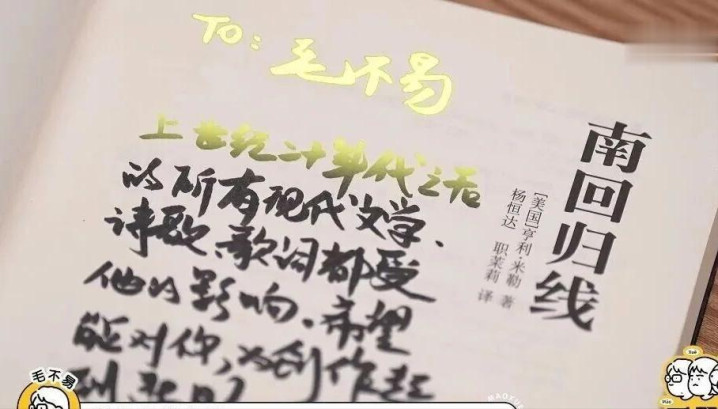 TO: 毛不易
上世纪二十年代之后
的所有现代文学、
诗歌、歌词都受
他的影响、希望
能对你,为创作起
到
南回归线
[美国]亨利·米勒 著
杨恒达 职茉莉 译
毛不易